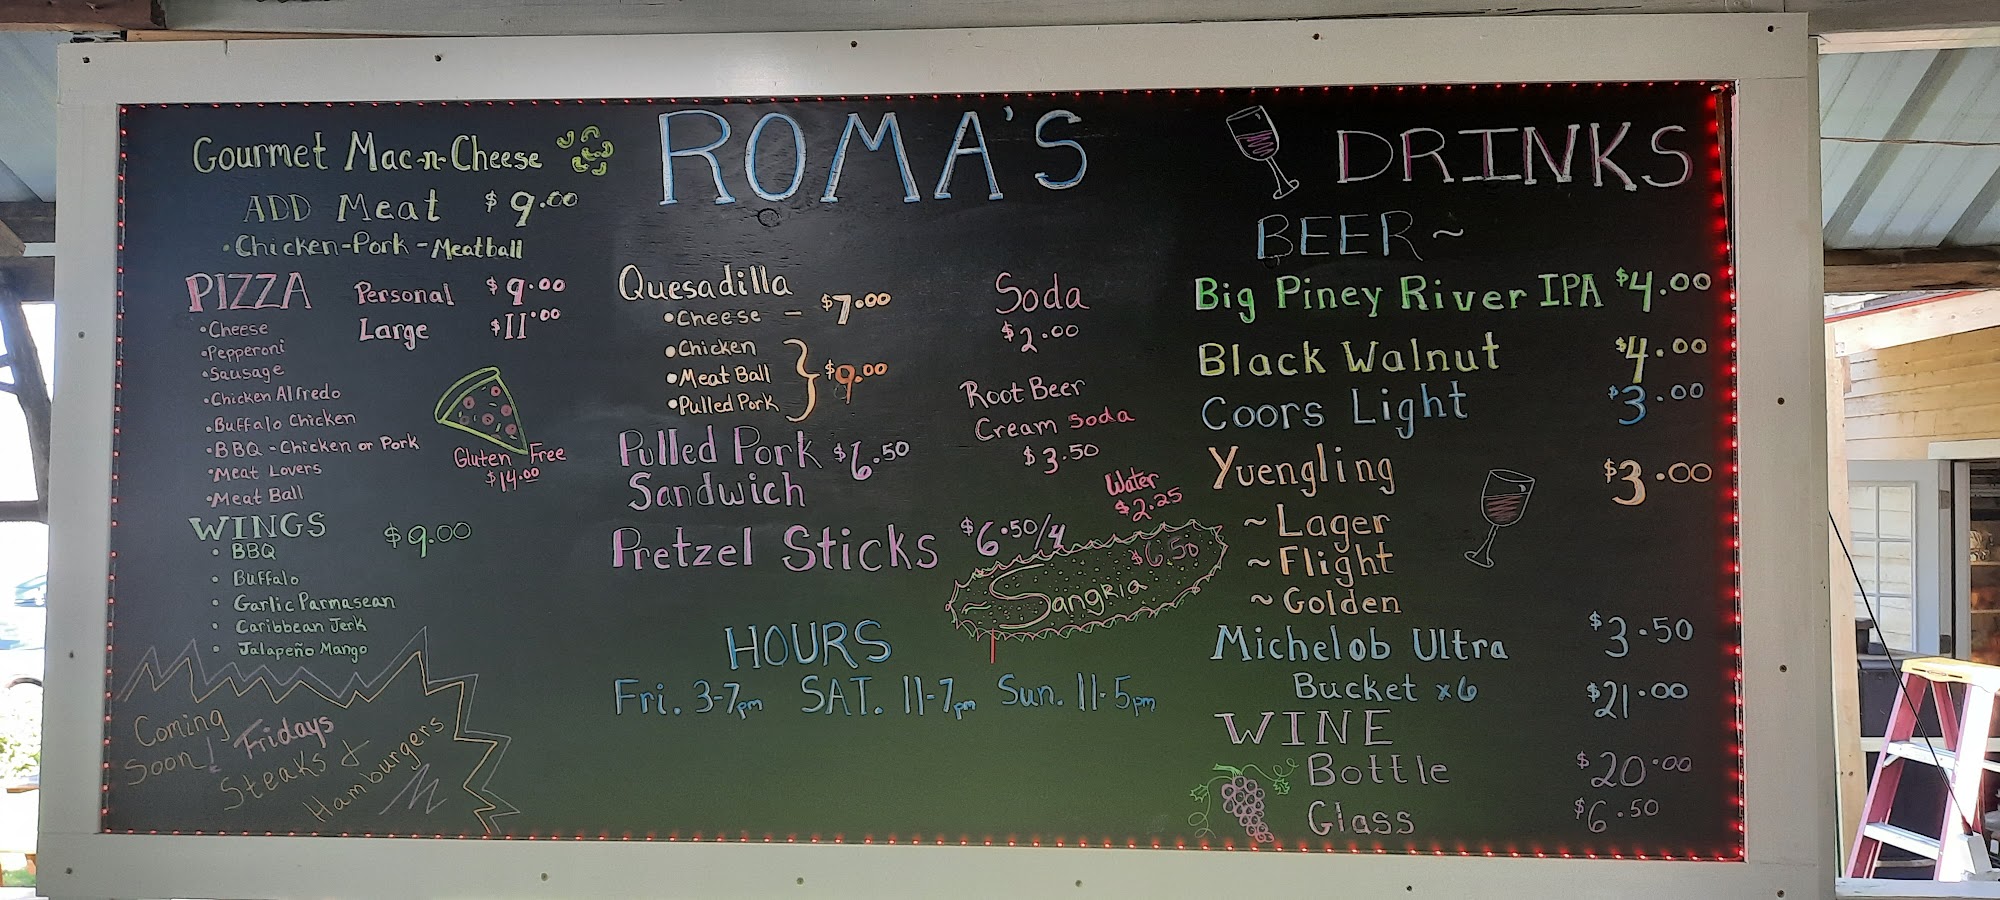 ROMA'S
Gourmet Mac-n-Cheese
ADD Meat $9.00
• Chicken-Pork-Meatball
PIZZA Personal $9.00
Large $11.00
• Cheese
• Pepperoni
• Sausage
• Chicken Alfredo
• Buffalo Chicken
• BBQ - Chicken or Pork
• Meat Lovers
• Meat Ball
Gluten Free
$14.00
WINGS $9.00
• BBQ
• Buffalo
• Garlic Parmasean
• Caribbean Jerk
• Jalapeño Mango
Coming
Soon! Fridays
Steaks &
Hamburgers
Quesadilla
• Cheese - $7.00
• Chicken
• Meat Ball } $9.00
• Pulled Pork
Pulled Pork $6.50
Sandwich
Pretzel Sticks $6.50/4
Soda
$2.00
Root Beer
Cream Soda
$3.50
Water
$2.25
$6.50
~Sangria
HOURS
Fri. 3-7pm SAT. 11-7pm Sun. 11-5pm
DRINKS
BEER~
Big Piney River IPA $4.00
Black Walnut $4.00
Coors Light $3.00
Yuengling $3.00
~Lager
~Flight
~Golden
Michelob Ultra $3.50
Bucket x6 $21.00
WINE
Bottle $20.00
Glass $6.50